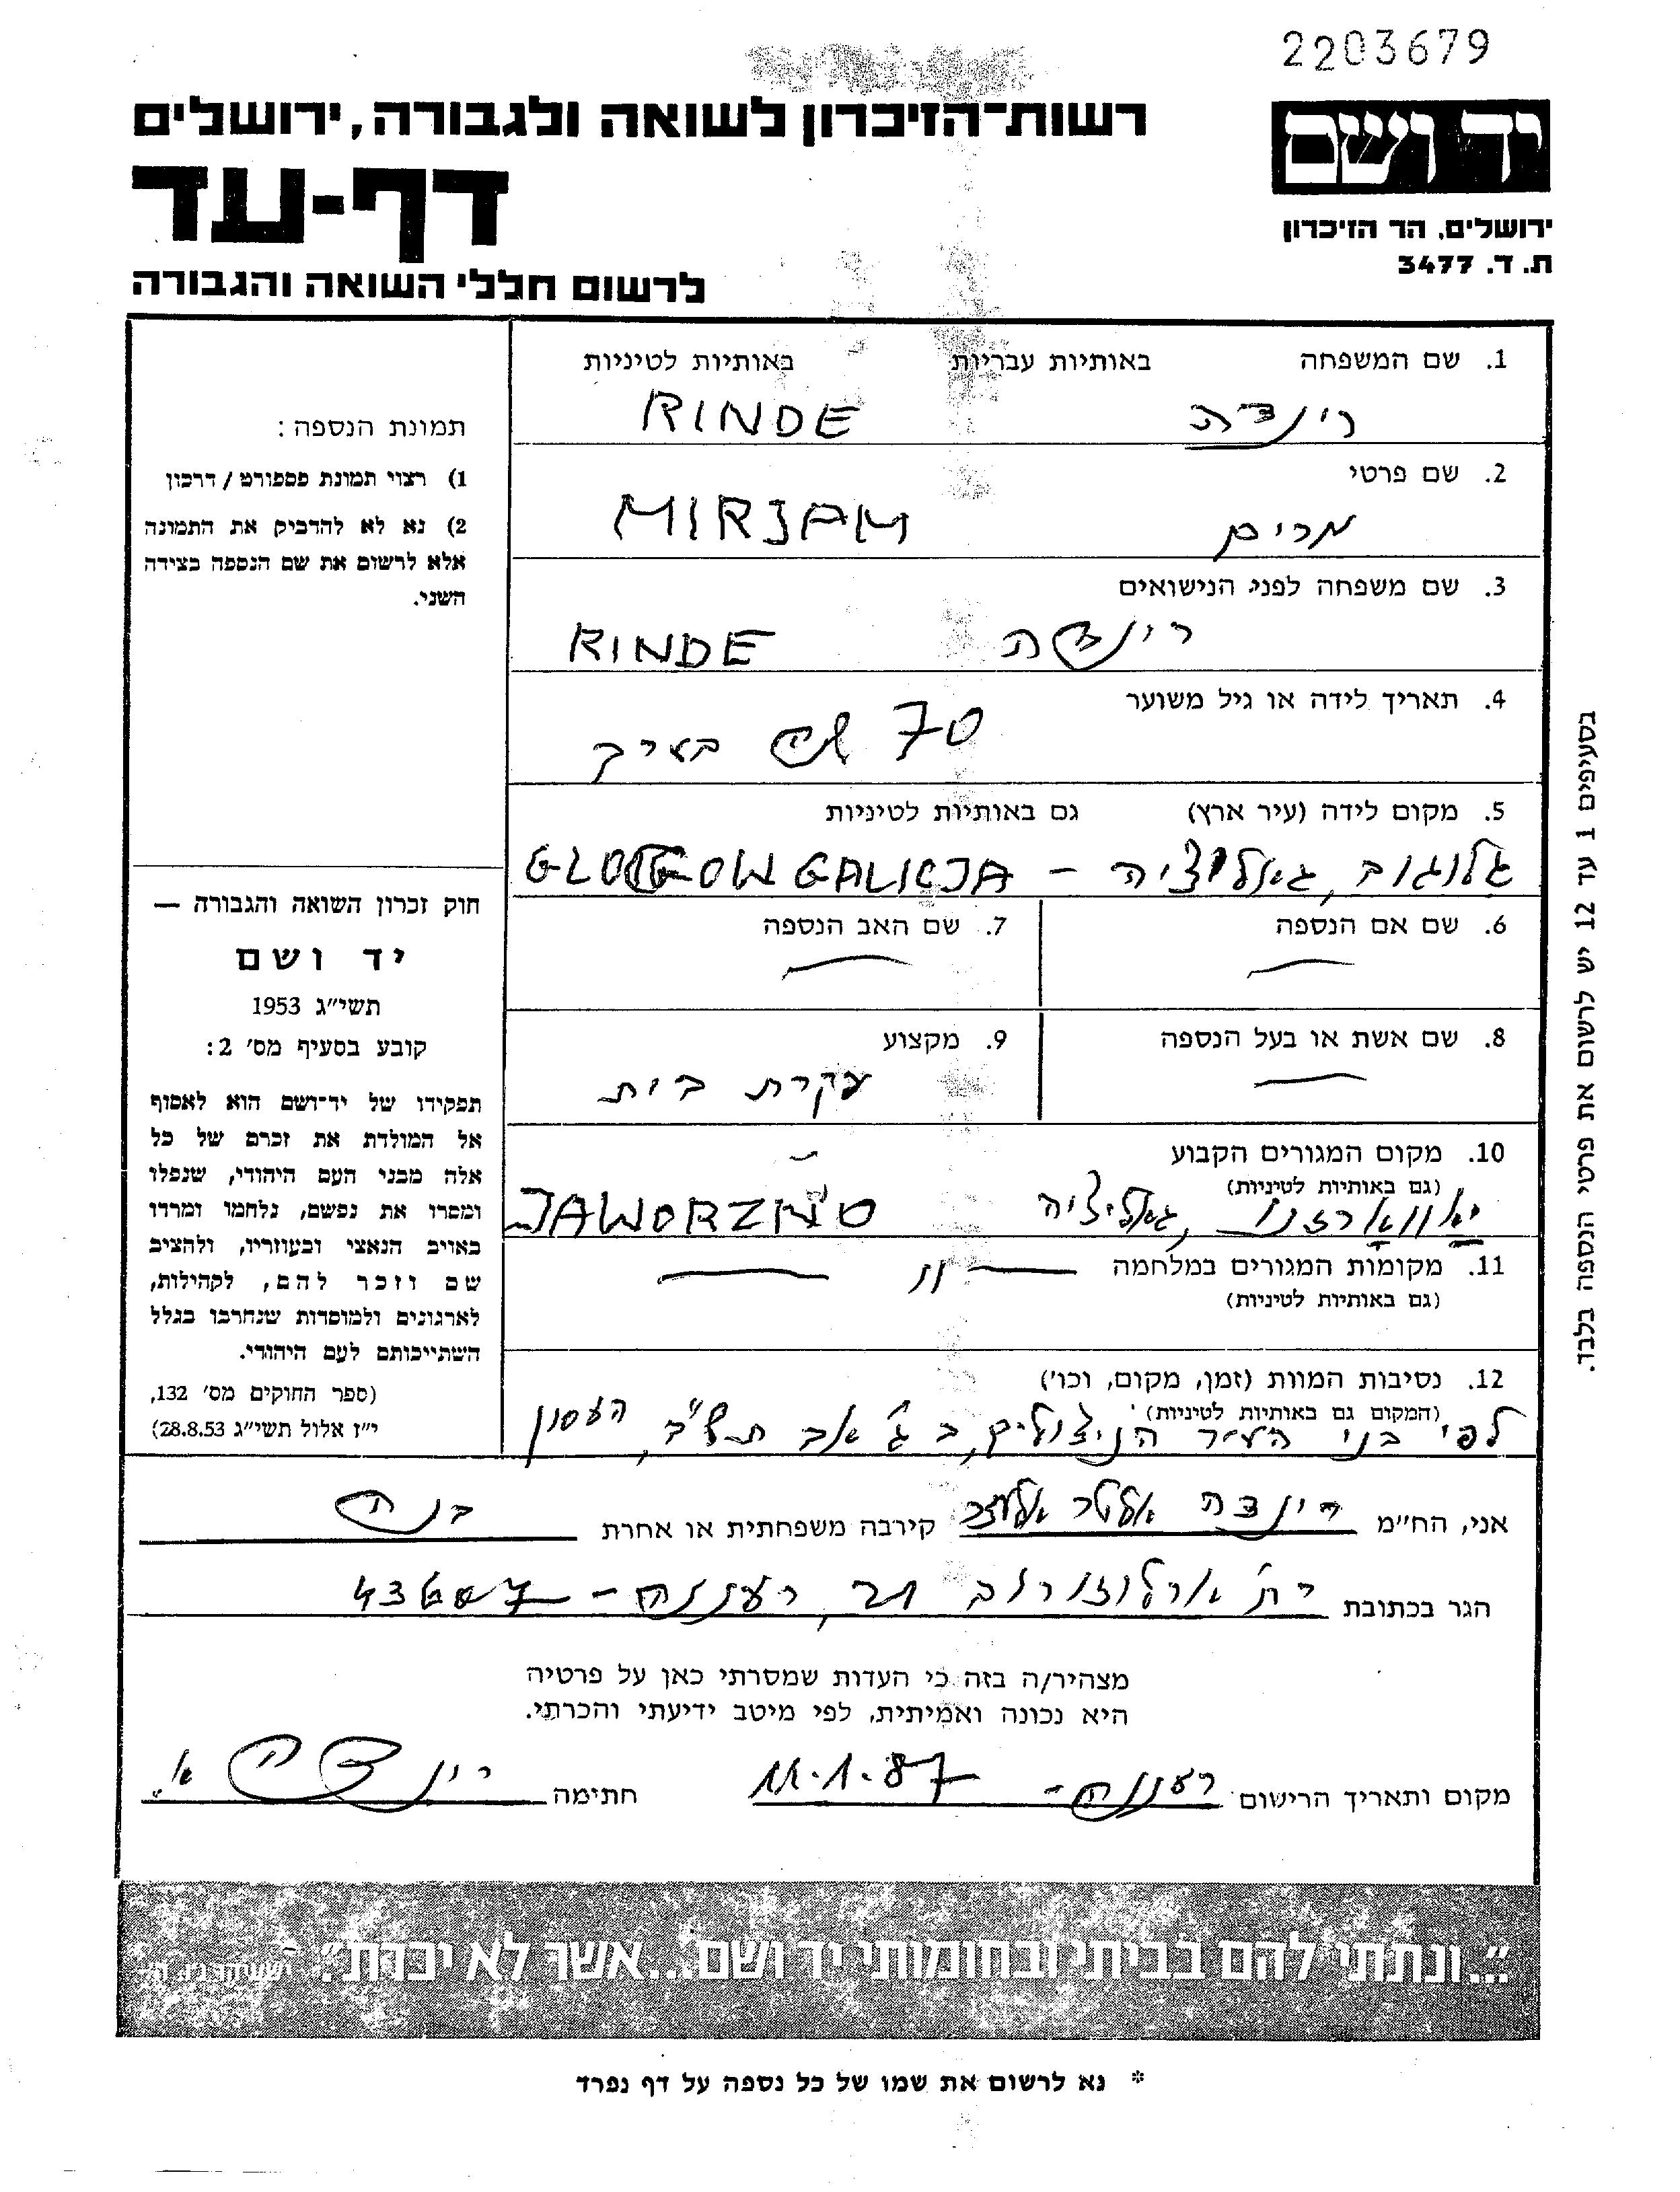 2203679
יד ושם
ירושלים, הר הזיכרון
ת. ד. 3477
רשות־הזיכרון לשואה ולגבורה, ירושלים
דף-עד
לרשום חללי השואה והגבורה
1. שם המשפחה באותיות עבריות באותיות לטיניות
רינדה RINDE
2. שם פרטי
מרים MIRJAM
3. שם משפחה לפני הנישואים
רינדה RINDE
4. תאריך לידה או גיל משוער
70 שנה בערך
5. מקום לידה (עיר ארץ) גם באותיות לטיניות
גלוגוב, גאליציה - GLOGOW GALICJA
6. שם אם הנספה 7. שם האב הנספה
8. שם אשת או בעל הנספה 9. מקצוע
עקרת בית
10. מקום המגורים הקבוע
(גם באותיות לטיניות)
יאווארזנו, גאליציה JAWORZNO
11. מקומות המגורים במלחמה — " —
(גם באותיות לטיניות)
12. נסיבות המוות (זמן, מקום, וכו')
(המקום גם באותיות לטיניות)
לפי בני העיר הניצולים, ב ג' אב תש"ב,
אני, הח״מ רינדה אלטר אלעזר קירבה משפחתית או אחרת בנה
הגר בכתובת רח' ארלוזורוב 21, רעננה - 43607
מצהיר/ה בזה כי העדות שמסרתי כאן על פרטיה
היא נכונה ואמיתית, לפי מיטב ידיעתי והכרתי.
מקום ותאריך הרישום רעננה - 11.1.87 חתימה רינדה א.
תמונת הנספה:
1) רצוי תמונת פספורט / דרכון
2) נא לא להדביק את התמונה
אלא לרשום את שם הנספה בצידה
השני.
חוק זכרון השואה והגבורה —
יד ושם
תשי״ג 1953
קובע בסעיף מס' 2:
תפקידו של יד־ושם הוא לאסוף
אל המולדת את זכרם של כל
אלה מבני העם היהודי, שנפלו
ומסרו את נפשם, נלחמו ומרדו
באויב הנאצי ובעוזריו, ולהציב
שם וזכר להם, לקהילות,
לארגונים ולמוסדות שנחרבו בגלל
השתייכותם לעם היהודי.
(ספר החוקים מס' 132,
י״ז אלול תשי״ג 28.8.53)
בסעיפים 1 עד 12 יש לרשום את פרטי הנספה בלבד.
"...ונתתי להם בביתי ובחומותי יד ושם...אשר לא יכרת".
* נא לרשום את שמו של כל נספה על דף נפרד